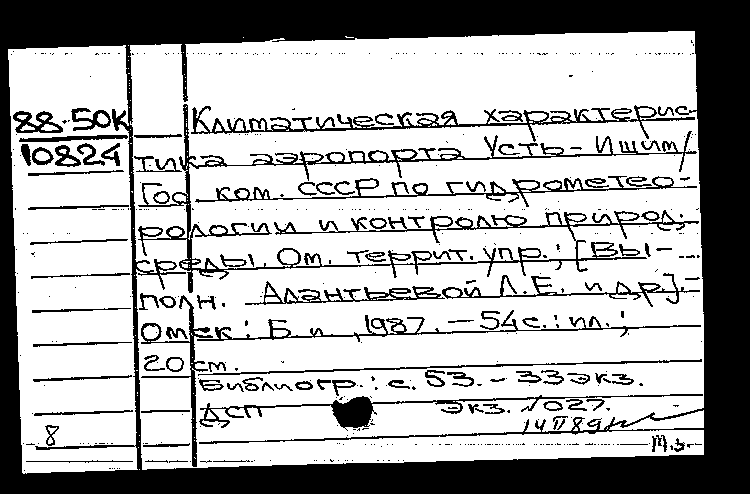 88-50К Климатическая характерис-
10824 тика аэропорта Усть-Ишим/
Гос. ком. СССР по гидрометео-
рологии и контролю природ.
среды. Ом. террит. упр.; [Вы-
полн. Алантьевой Л.Е. и др].-
Омск: Б и, 1987. - 54с.: ил.;
20 см.
Библиогр.: с. 53. - 33 экз.
ДСП экз. №027.
14 II 89
8
М.З.